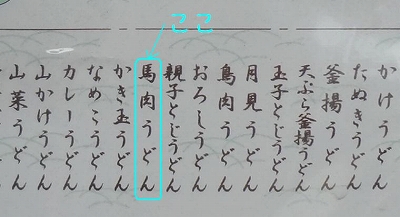 ここ
かけうどん
たぬきうどん
釜揚うどん
天ぷら釜揚うどん
玉子とじうどん
月見うどん
鳥肉うどん
おろしうどん
親子とじうどん
馬肉うどん
かき玉うどん
なめこうどん
カレーうどん
山かけうどん
山菜うどん